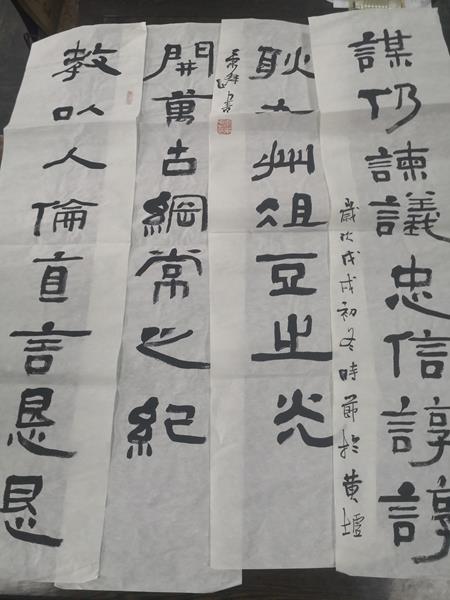 謀仍諫議忠信諄諄
歲次戊戌初冬時節於黃墟
耿九州俎豆之光
開萬古綱常之紀
教以人倫直言恳恳